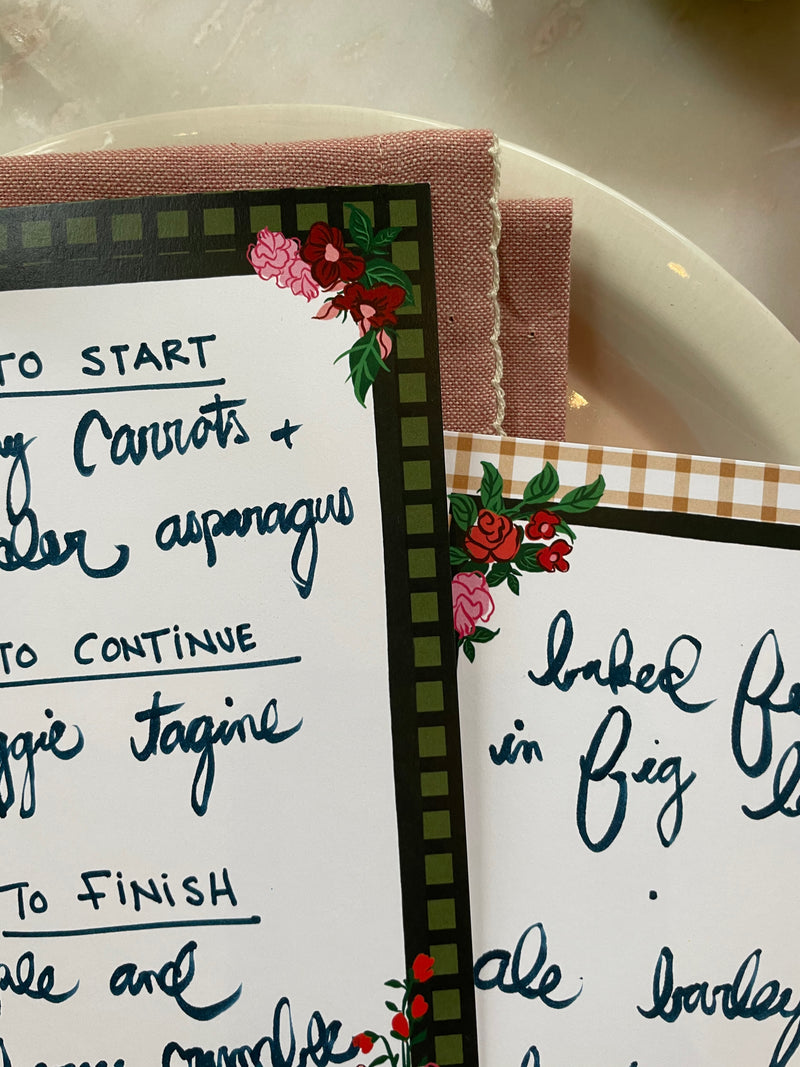 TO START
y Carrots +
der asparagus
TO CONTINUE
ggie tagine
TO FINISH
ale and
crumble
baked fe
in fig le
.
ale barley